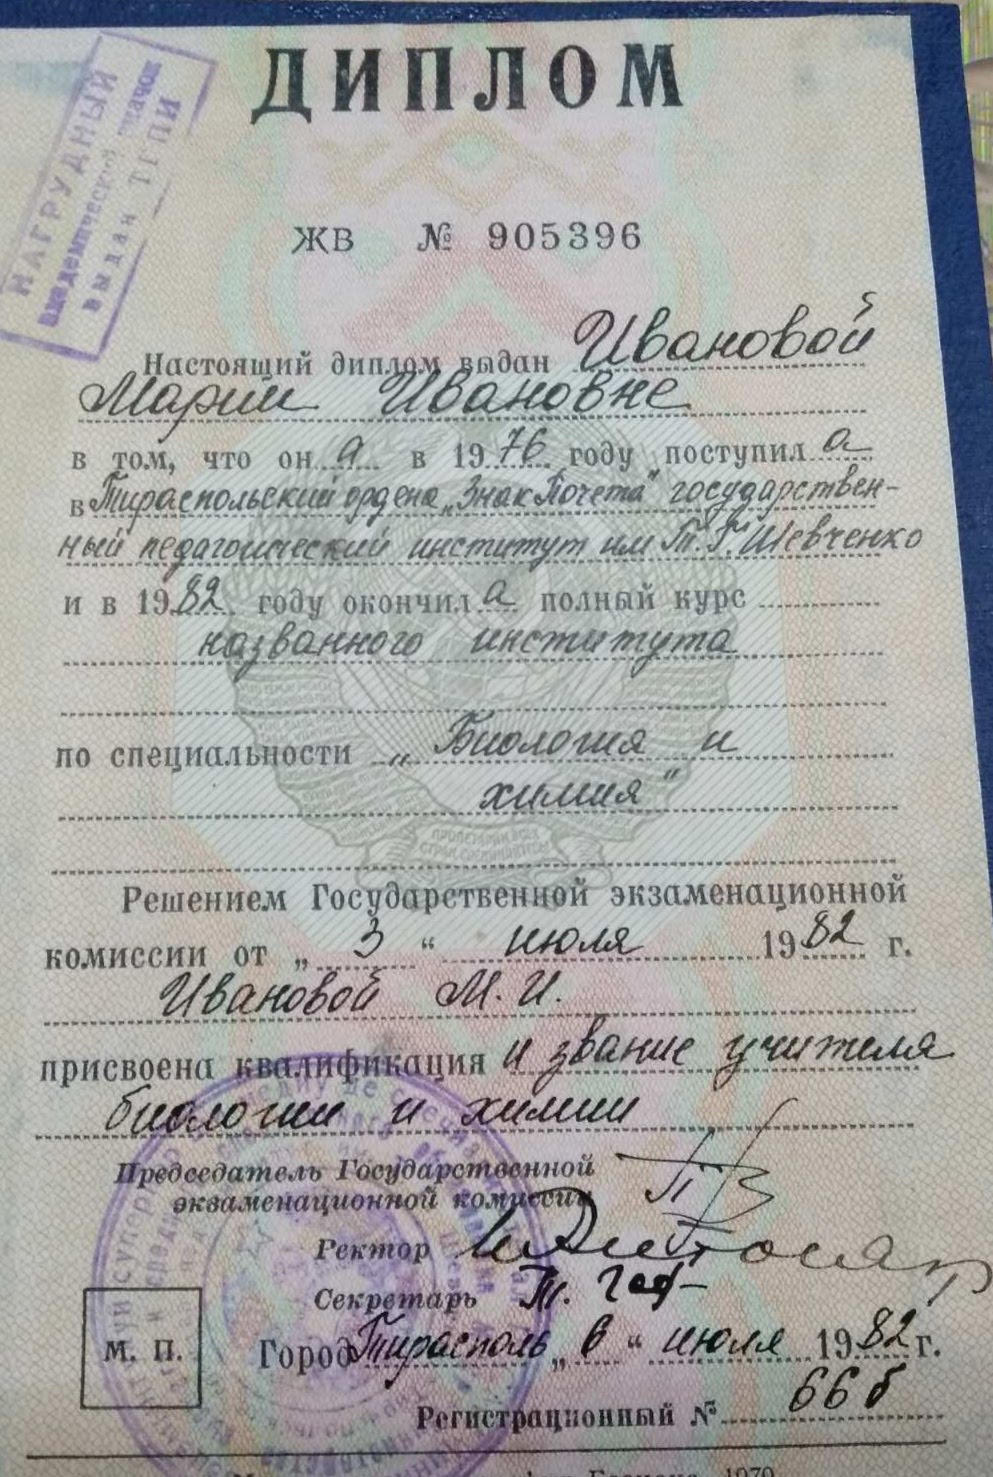 ДИПЛОМ
НАГРУДНЫЙ
академический значок
выдан ТГПИ
ЖВ № 905396
Настоящий диплом выдан Ивановой
Марии Ивановне
в том, что он а в 1976 году поступил а
в Тираспольский ордена „Знак Почета" государствен-
ный педагогический институт им Т. Г. Шевченко
и в 1982 году окончил а полный курс
названного института
по специальности „Биология и
химия"
Решением Государственной экзаменационной
комиссии от „3" июля 1982 г.
Ивановой М. И.
присвоена квалификация и звание учителя
биологии и химии
Председатель Государственной
экзаменационной комиссии
Ректор
Секретарь
М. П.
Город Тирасполь „6" июля 1982 г.
Регистрационный № 66 б